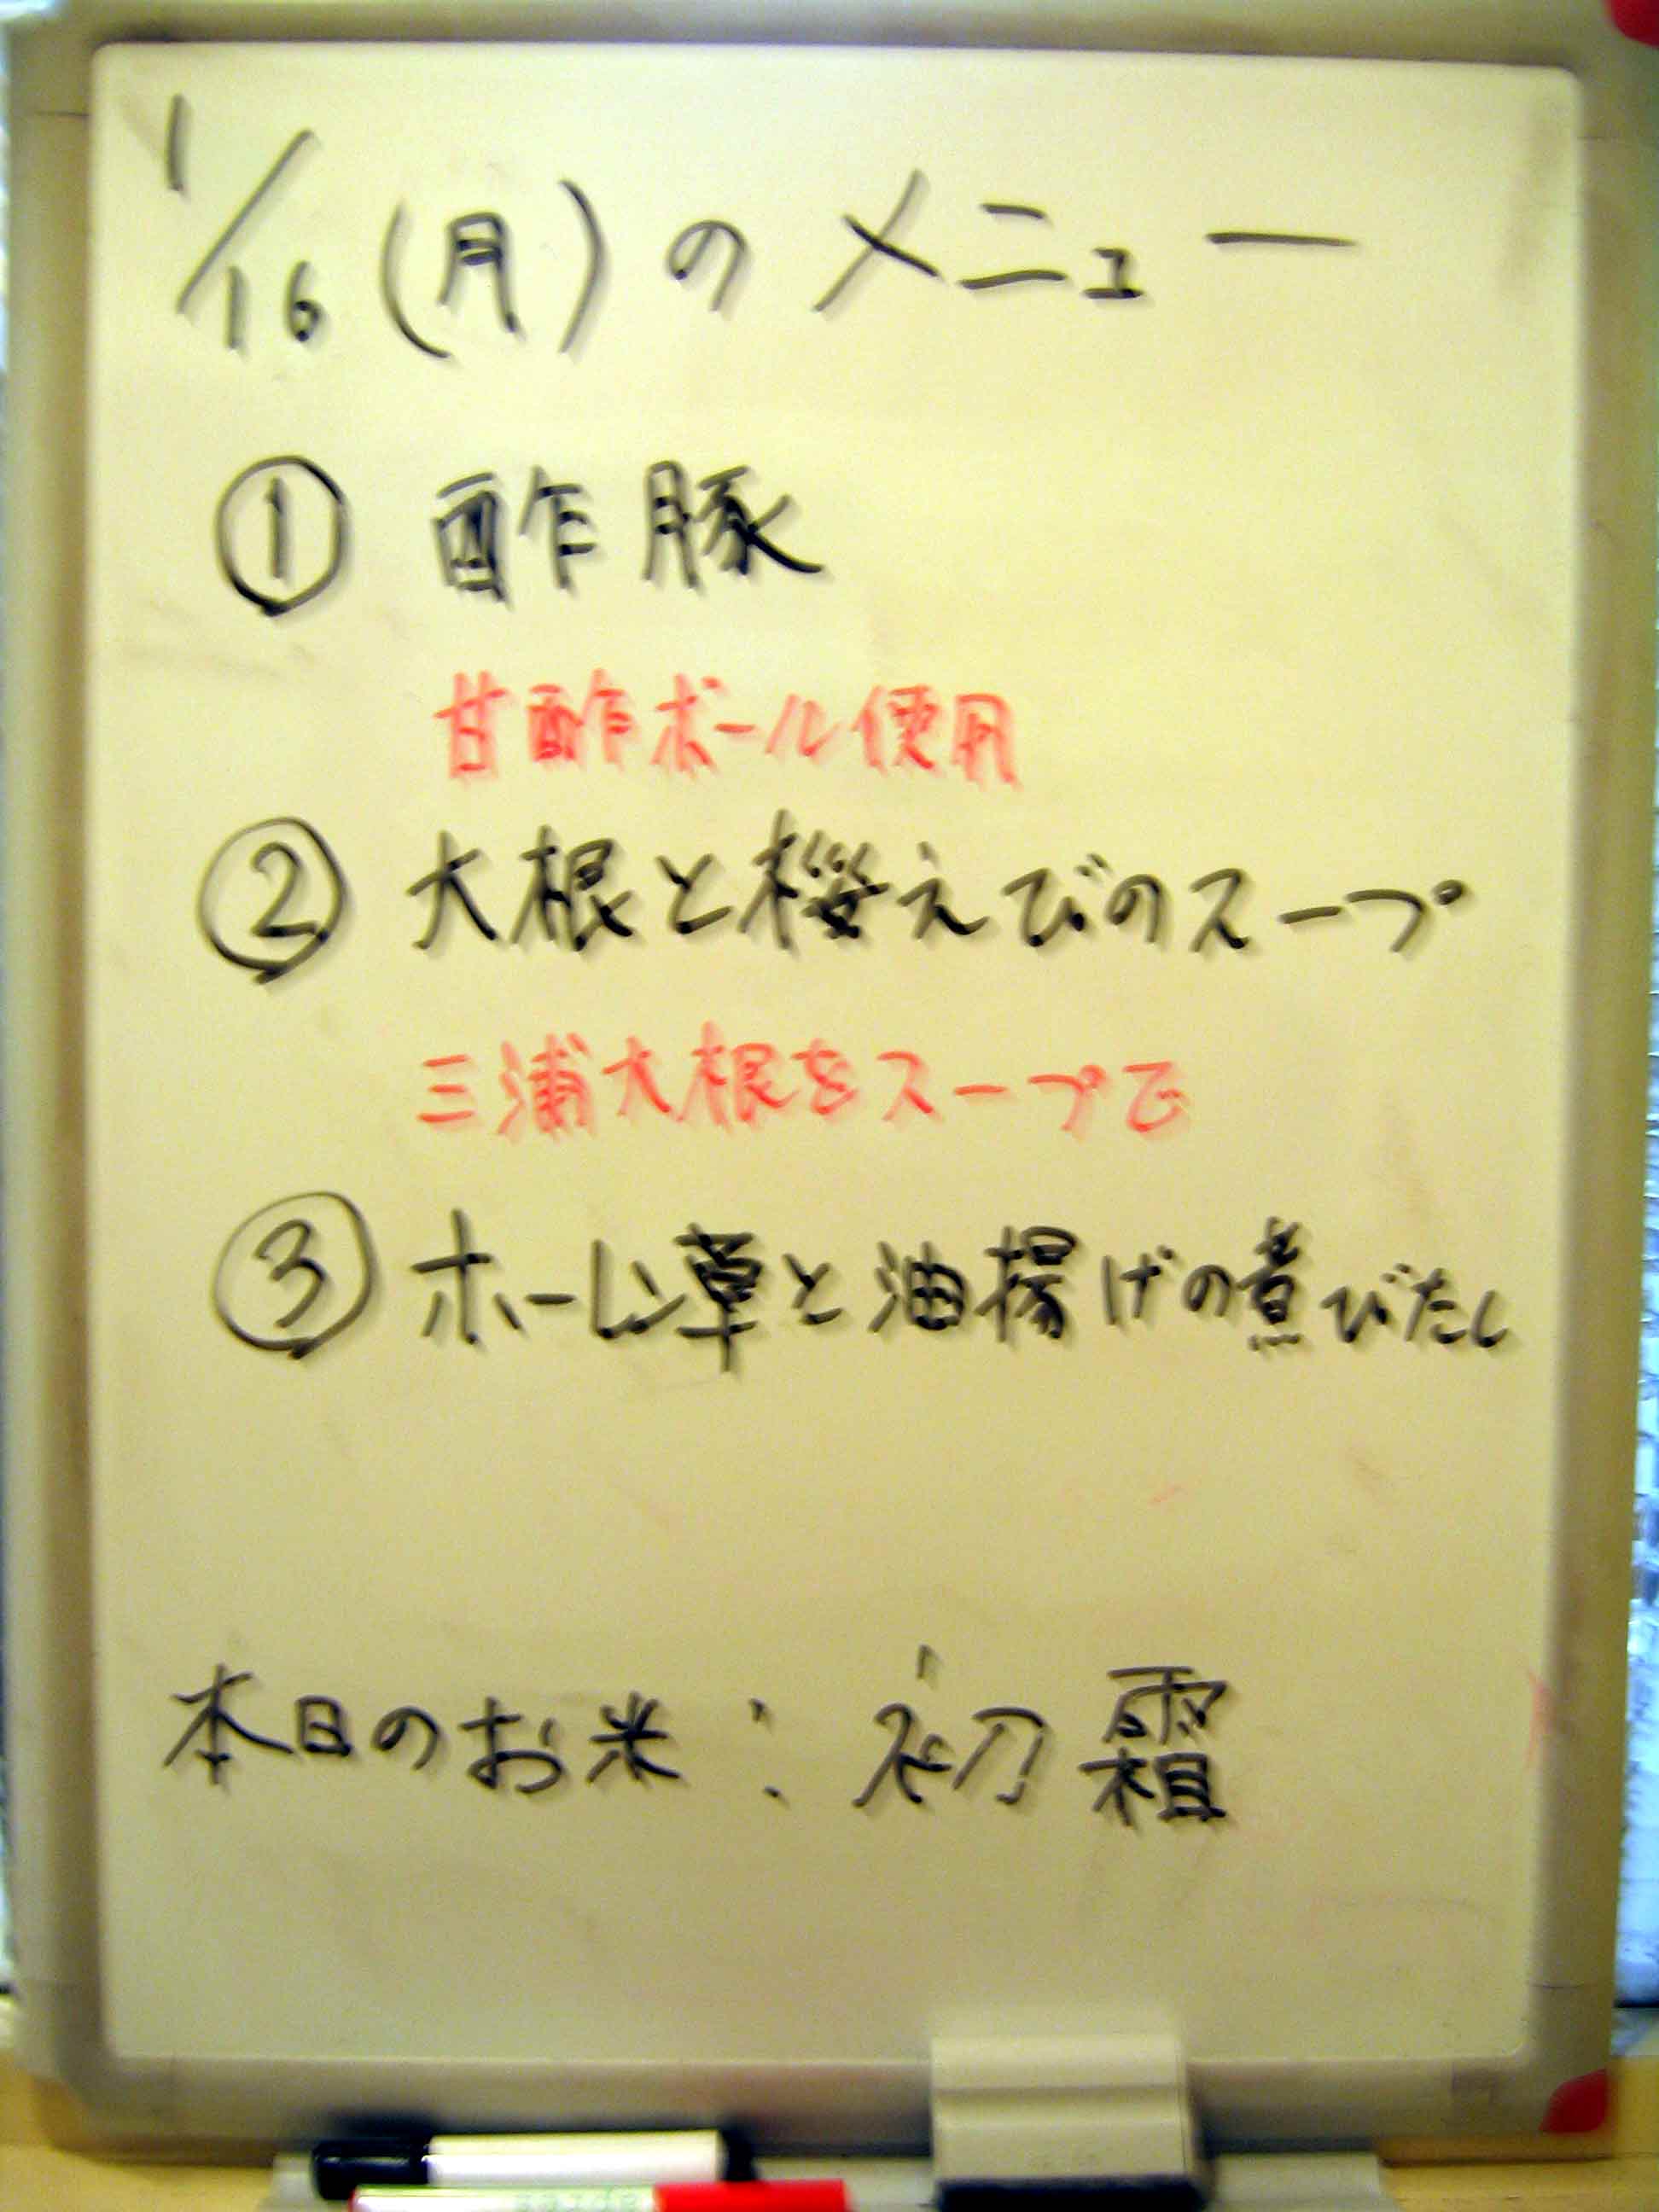 1/16(月)のメニュー
① 酢豚
甘酢ボール使用
② 大根と桜えびのスープ
三浦大根をスープで
③ ホーレン草と油揚げの煮びたし
本日のお米:初霜